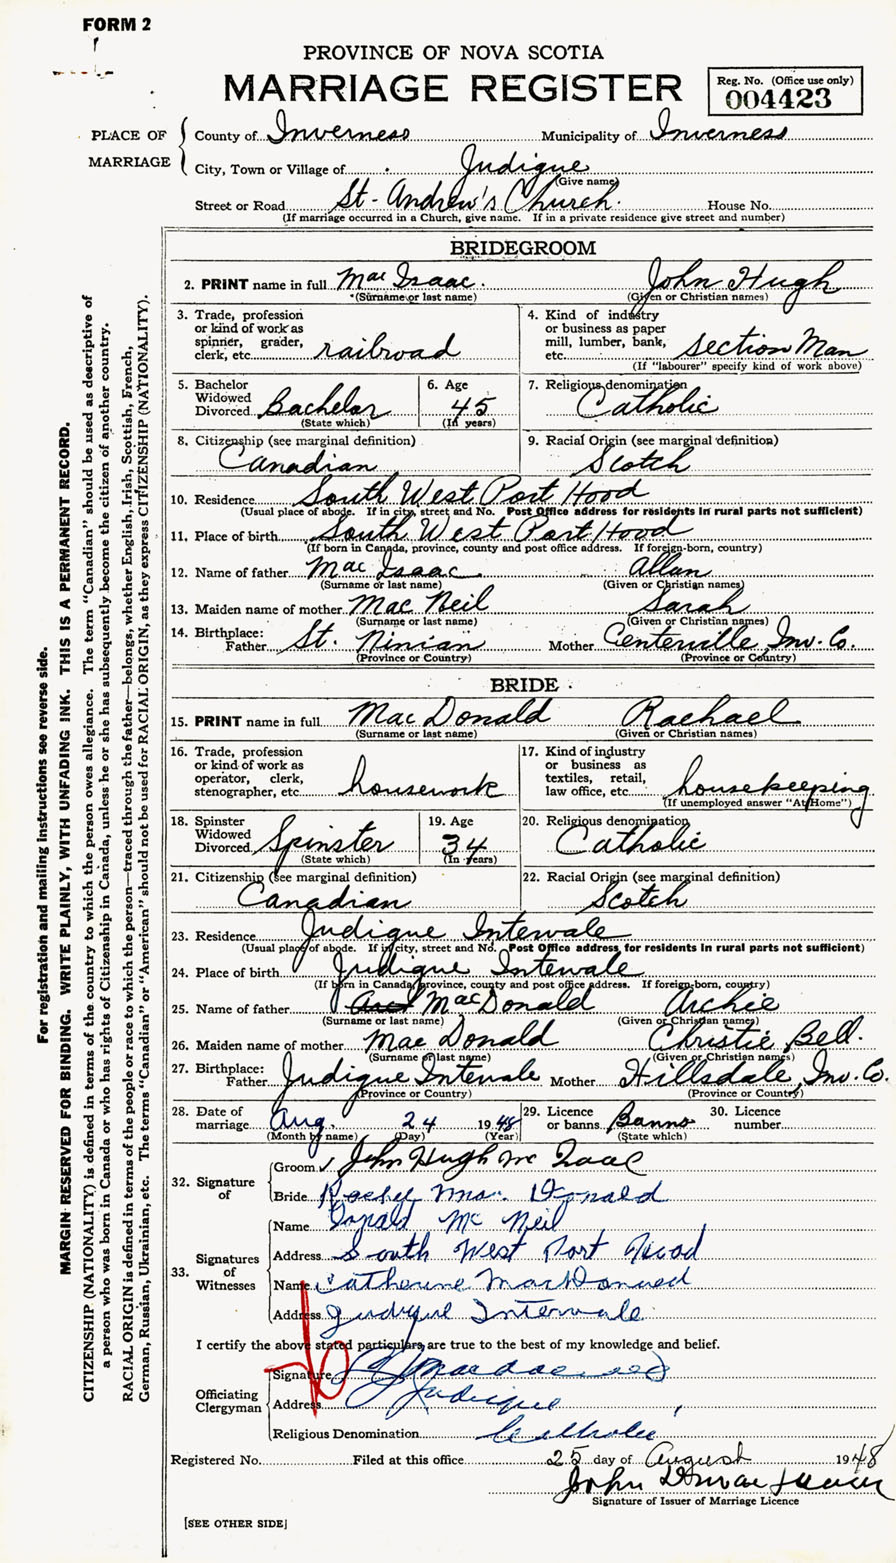 FORM 2
PROVINCE OF NOVA SCOTIA
MARRIAGE REGISTER
Reg. No. (Office use only)
004423
PLACE OF MARRIAGE
County of Inverness Municipality of Inverness
City, Town or Village of Judique
(Give name)
Street or Road St. Andrew's Church. House No.
(If marriage occurred in a Church, give name. If in a private residence give street and number)
BRIDEGROOM
2. PRINT name in full Mac Isaac. John Hugh
(Surname or last name) (Given or Christian names)
3. Trade, profession or kind of work as spinner, grader, clerk, etc. railroad
4. Kind of industry or business as paper mill, lumber, bank, etc. section Man
(If "labourer" specify kind of work above)
5. Bachelor Widowed Divorced Bachelor
(State which)
6. Age 45
(In years)
7. Religious denomination Catholic
8. Citizenship (see marginal definition) Canadian
9. Racial Origin (see marginal definition) Scotch
10. Residence South West Port Hood
(Usual place of abode. If in city, street and No. Post Office address for residents in rural parts not sufficient)
11. Place of birth South West Port Hood
(If born in Canada, province, county and post office address. If foreign-born, country)
12. Name of father Mac Isaac. Allan
(Surname or last name) (Given or Christian names)
13. Maiden name of mother Mac Neil Sarah
(Surname or last name) (Given or Christian names)
14. Birthplace:
Father St. Ninian Mother Centerville Inv. Co.
(Province or Country) (Province or Country)
BRIDE
15. PRINT name in full Mac Donald Rachael
(Surname or last name) (Given or Christian names)
16. Trade, profession or kind of work as operator, clerk, stenographer, etc. housework
17. Kind of industry or business as textiles, retail, law office, etc. housekeeping
(If unemployed answer "At Home")
18. Spinster Widowed Divorced Spinster
(State which)
19. Age 34
(In years)
20. Religious denomination Catholic
21. Citizenship (see marginal definition) Canadian
22. Racial Origin (see marginal definition) Scotch
23. Residence Judique Intervale
(Usual place of abode. If in city, street and No. Post Office address for residents in rural parts not sufficient)
24. Place of birth Judique Intervale
(If born in Canada, province, county and post office address. If foreign-born, country)
25. Name of father MacDonald Archie
(Surname or last name) (Given or Christian names)
26. Maiden name of mother Mac Donald Christie Bell.
(Surname or last name) (Given or Christian names)
27. Birthplace:
Father Judique Intervale Mother Hillsdale, Inv. Co.
(Province or Country) (Province or Country)
28. Date of marriage Aug. 24 1948
(Month by name) (Day) (Year)
29. Licence or banns Banns
(State which)
30. Licence number
32. Signature of
Groom John Hugh Mc Isaac
Bride Rachel Mac Donald
33. Signatures of Witnesses
Name Donald Mc Neil
Address South West Port Hood
Name Catherine MacDonald
Address Judique Intervale
I certify the above stated particulars are true to the best of my knowledge and belief.
Officiating Clergyman
Signature
Address Judique
Religious Denomination Catholic
Registered No. Filed at this office 25 day of August 1948
John D
Signature of Issuer of Marriage Licence
[SEE OTHER SIDE]
For registration and mailing instructions see reverse side.
MARGIN RESERVED FOR BINDING. WRITE PLAINLY, WITH UNFADING INK. THIS IS A PERMANENT RECORD.
CITIZENSHIP (NATIONALITY) is defined in terms of the country to which the person owes allegiance. The term "Canadian" should be used as descriptive of
a person who was born in Canada or who has rights of Citizenship in Canada, unless he or she has subsequently become the citizen of another country.
RACIAL ORIGIN is defined in terms of the people or race to which the person—traced through the father—belongs, whether English, Irish, Scottish, French,
German, Russian, Ukrainian, etc. The terms "Canadian" or "American" should not be used for RACIAL ORIGIN, as they express CITIZENSHIP (NATIONALITY).